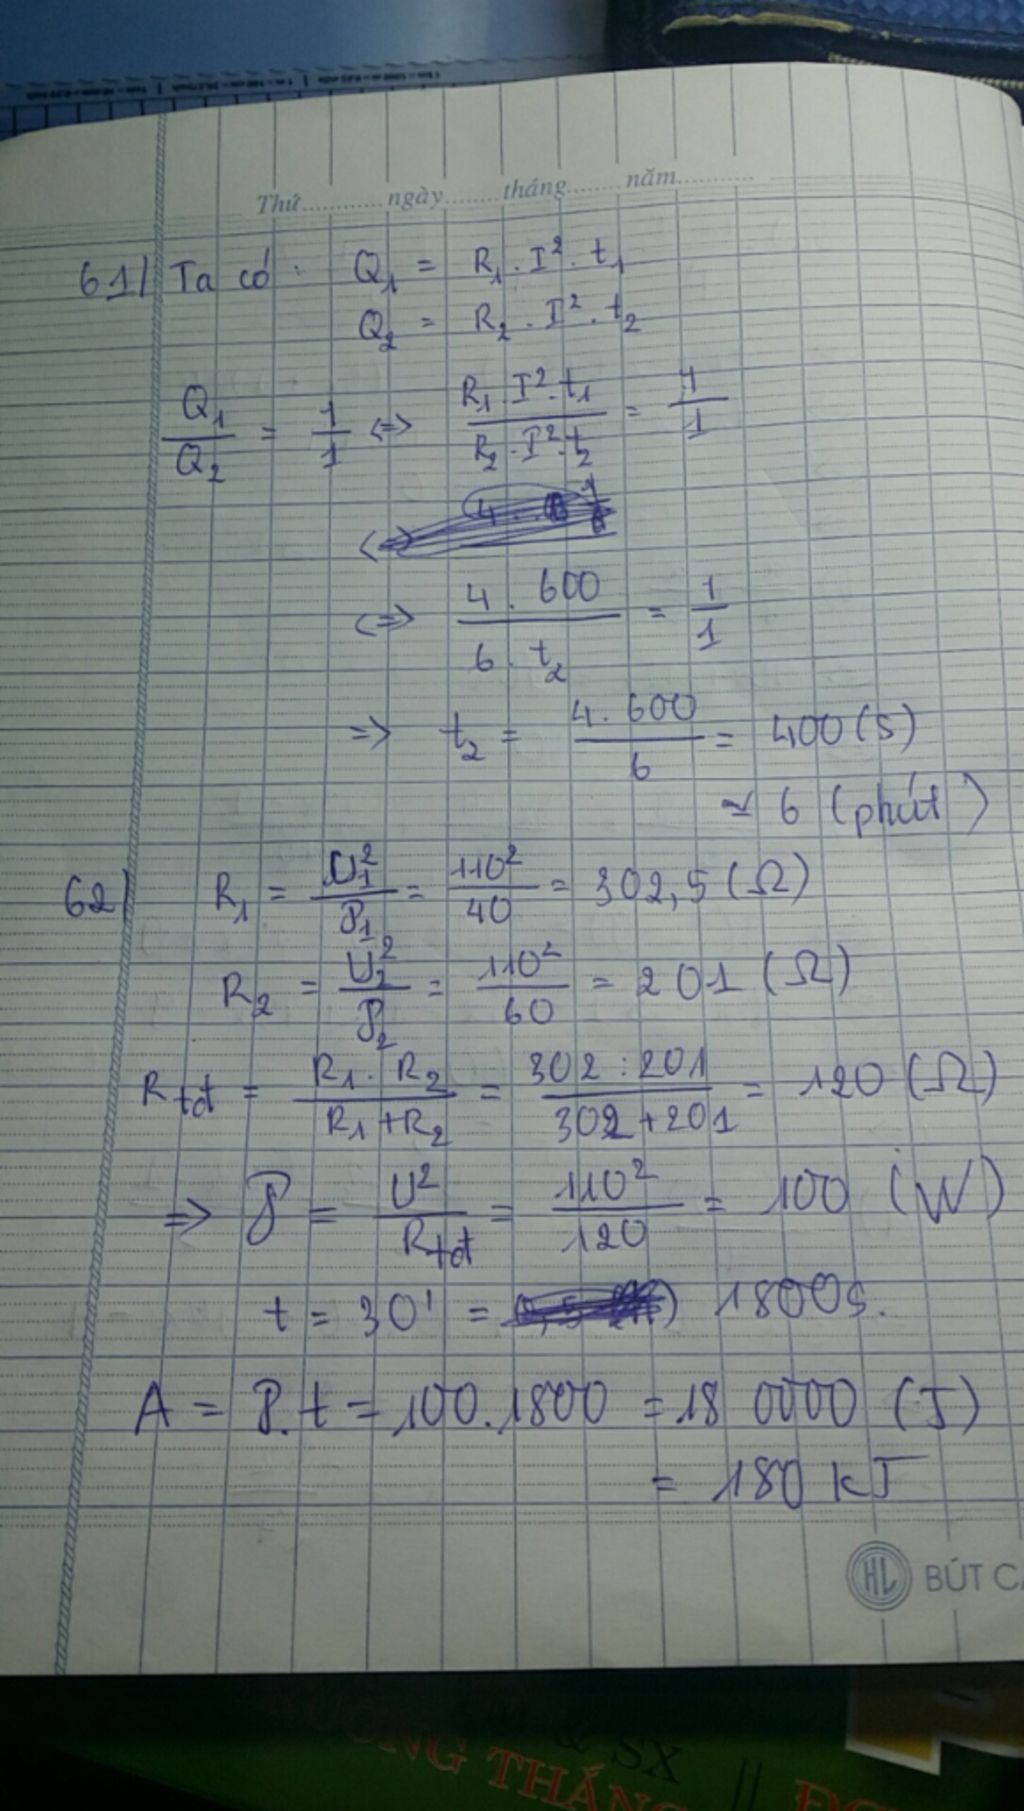 Thứ............ngày........tháng........năm............
61/ Ta có : Q₁ = R₁ . I² . t₁
Q₂ = R₂ . I² . t₂
Q₁/Q₂ = 1/1 <=> R₁ . I² . t₁ / R₂ . I² . t₂ = 1/1
<=> 4 . 600 / 6 . t₂ = 1/1
=> t₂ = 4 . 600 / 6 = 400 (s)
≃ 6 (phút)
62/ R₁ = U₁²/P₁ = 110²/40 = 302,5 (Ω)
R₂ = U₂²/P₂ = 110²/60 = 201 (Ω)
Rtđ = R₁ . R₂ / R₁ + R₂ = 302 : 201 / 302 + 201 = 120 (Ω)
=> P = U²/Rtđ = 110²/120 = 100 (W)
t = 30' = 1800s.
A = P.t = 100.1800 = 18 0000 (J)
= 180 kJ
HL BÚT C
& SX
NG THÁN